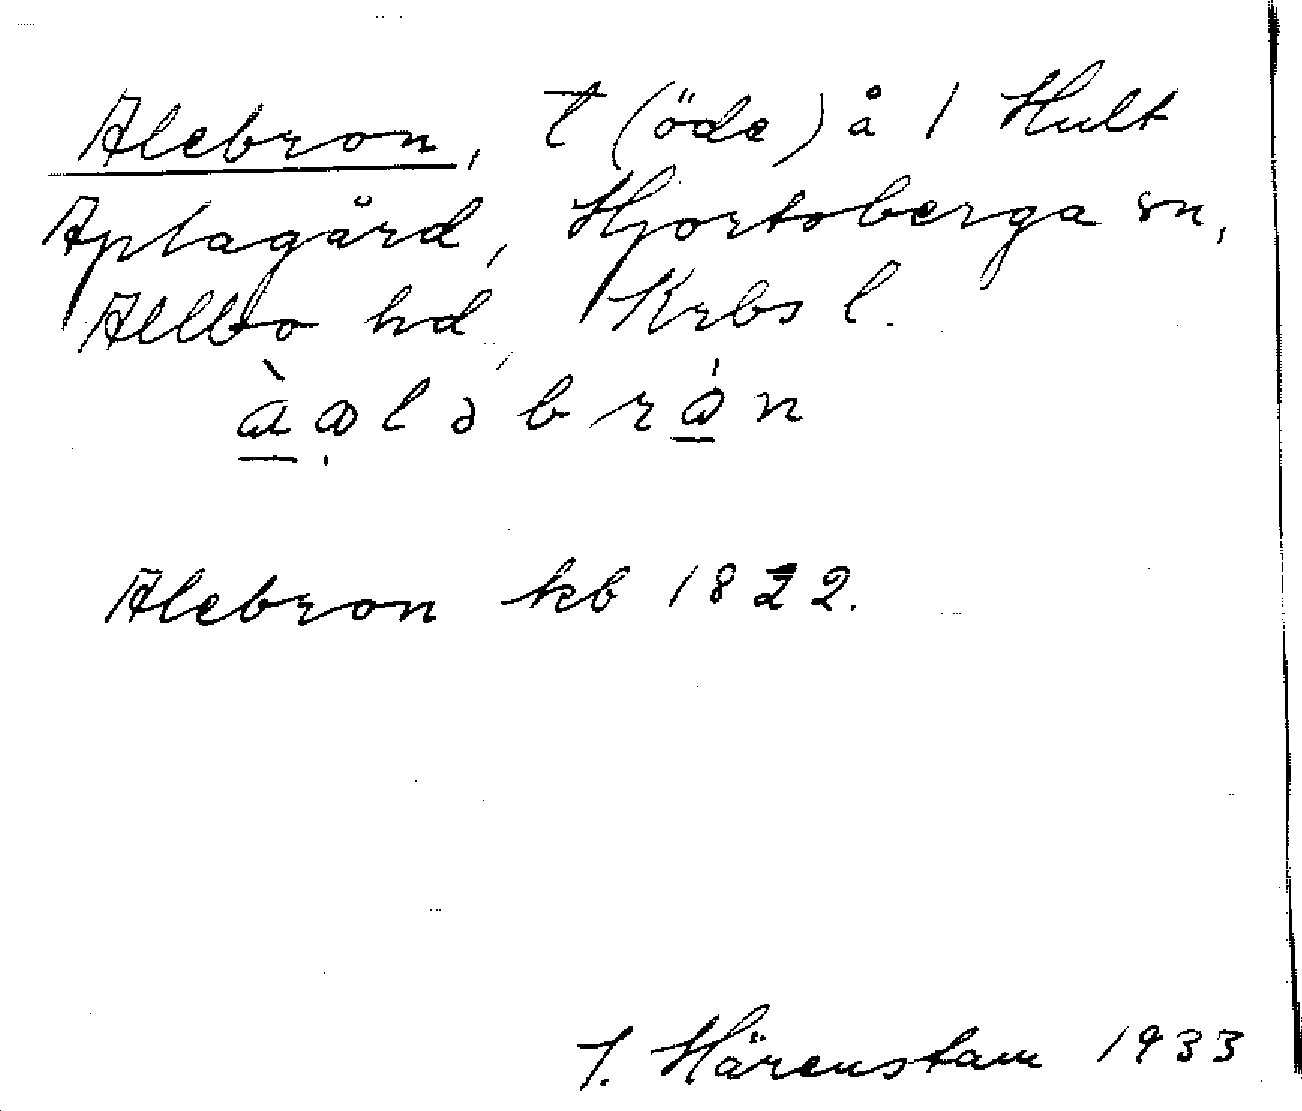 Alebron, t (öde) å 1 Hult
Aplagård, Hjortsberga sn,
Allbo hd, Krbs l.
àạləbrån
Alebron kb 1822.
J. Härenstam 1933